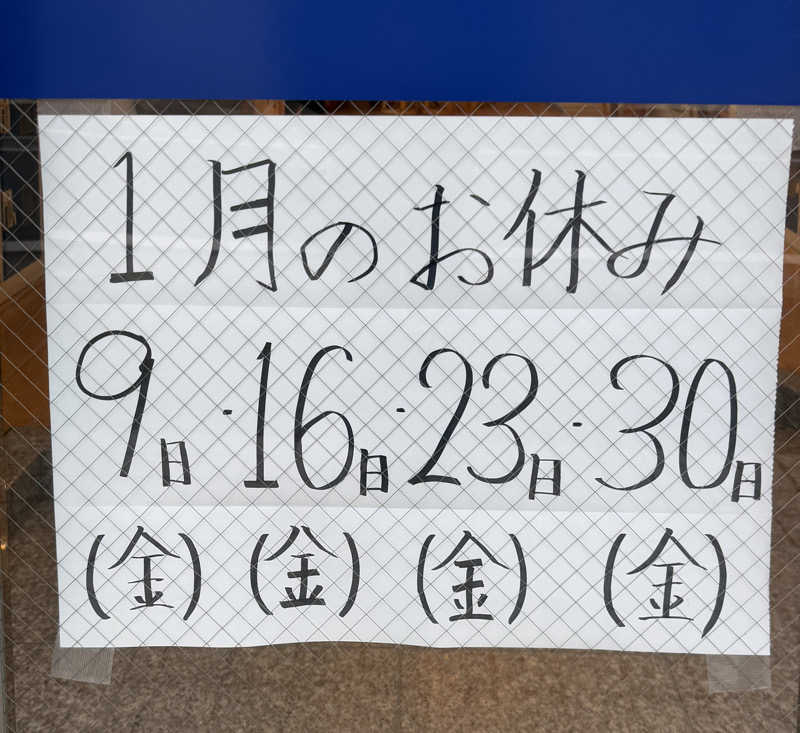 1月のお休み
9日・16日・23日・30日
(金) (金) (金) (金)